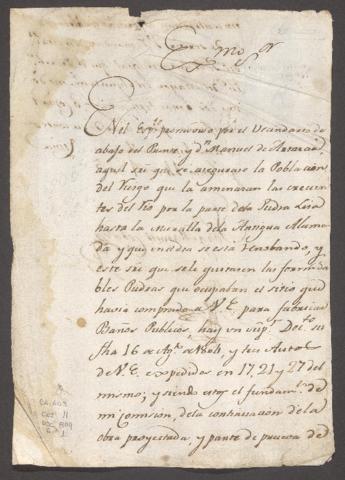 Exmo Sr
En el Expte promovido por el Vecindario de
abajo del Puente, y Dn Manuel de
aquel sre que se asegurase la Población
del riesgo que la amenazan las crecien-
tes del Rio por la parte de la Piedra Lisa
hasta la Muralla dela Antigua Alame-
da y que en el dia se está acabando, y
este sre que se le quitasen las formida-
bles Piedras que ocupaban el sitio que
havia comprado a V.E. para fabricar
Baños Publicos, hay un Supr Decto su
fha 16 de Agto de , y tres Autos
de V.E. expedidos en 17, 21 y 27 del
mismo; y siendo estos el fundamto de
mi Comision, dela continuacion de la
obra proyectada, y parte de prueva de
CA-AG3
CAJ 11
DOC 809